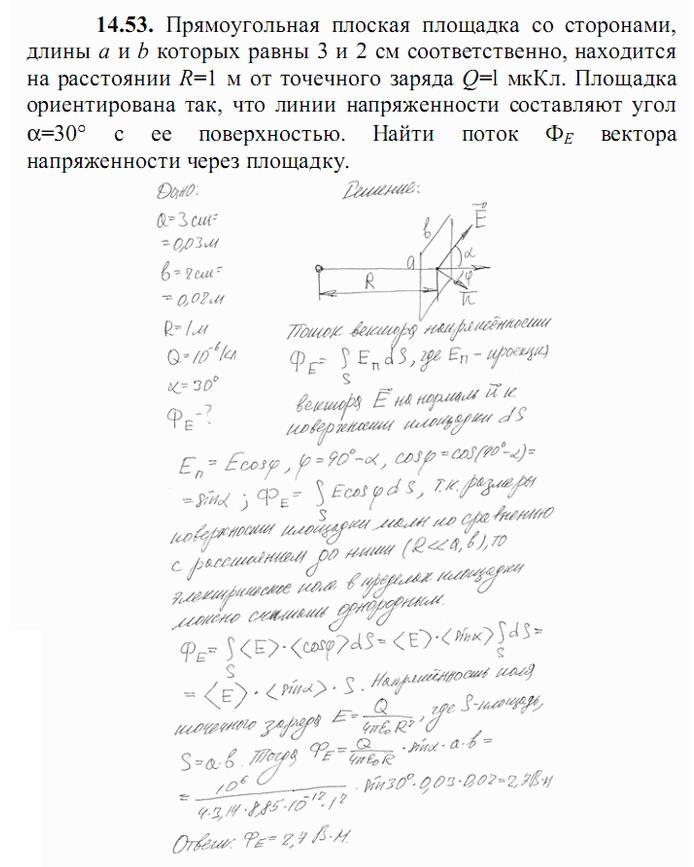 14.53. Прямоугольная плоская площадка со сторонами,
длины a и b которых равны 3 и 2 см соответственно, находится
на расстоянии R=1 м от точечного заряда Q=1 мкКл. Площадка
ориентирована так, что линии напряженности составляют угол
α=30° с ее поверхностью. Найти поток Ф_E вектора
напряженности через площадку.
Дано: Решение:
Q=3см=
=0,03м
b=2см=
=0,02м
R=1м
Q=10⁻⁶Кл
α=30°
Ф_E-?
a b R E α φ n
Поток вектора напряжённости
Ф_E=∫_S E_п dS, где E_п - проекция
вектора E на нормаль n к
поверхности площадки dS
E_п=Ecosφ, φ=90°-α, cosφ=cos(90°-α)=
=sinα; Ф_E=∫_S Ecosφ dS, т.к. размеры
поверхности площадки малы по сравнению
с расстоянием до них (R<<a,b), то
электрическое поле в пределах площадки
можно считать однородным.
Ф_E=∫_S <E>·<cosφ>dS=<E>·<sinα>∫_S dS=
=<E>·<sinα>·S. Напряжённость поля
точечного заряда E=Q/(4πε₀R²), где S-площадь,
S=a·b. Тогда Ф_E=Q/(4πε₀R)·sinα·a·b=
=10⁶/(4·3,14·8,85·10⁻¹²·1²)·sin30°·0,03·0,02=2,7В·м
Ответ: Ф_E=2,7 В·м.